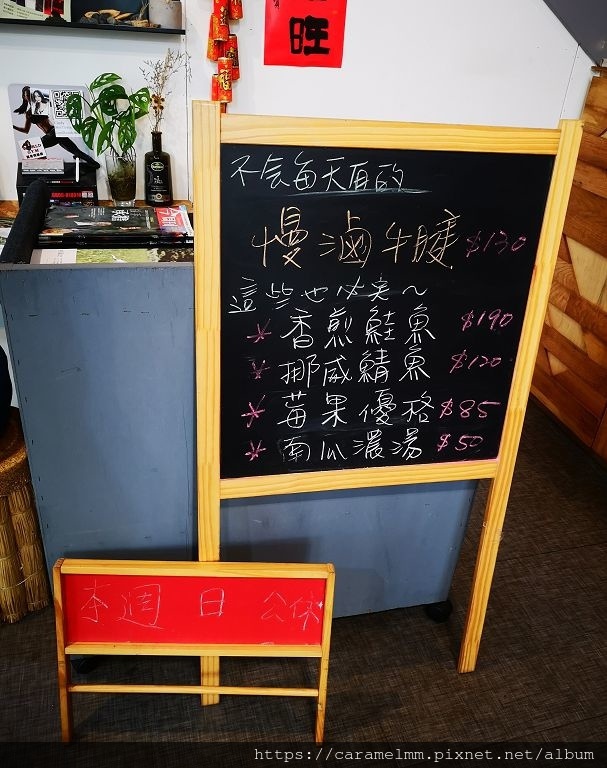 旺
不会每天有的
慢滷牛腱 $130
這些也必点～
* 香煎鮭魚 $190
* 挪威鯖魚 $120
* 莓果優格 $85
* 南瓜濃湯 $50
本週 日 公休
https://caramelmm.pixnet.net/album